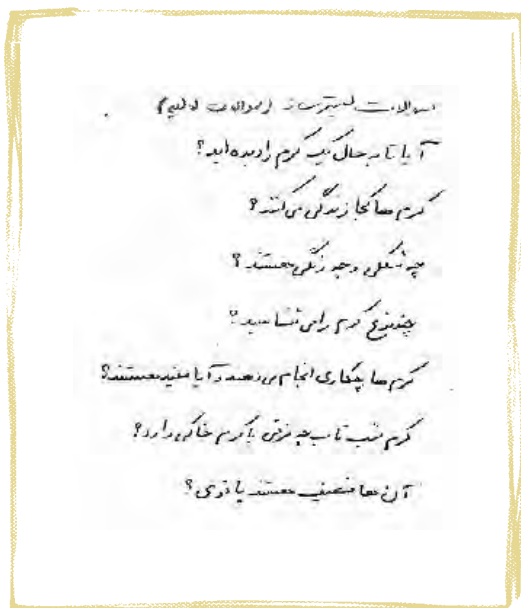 سوالات
آیا تا به حال یک کرم را دیده اید؟
کرم ها کجا زندگی می کنند؟
چه شکلی و چه رنگی هستند؟
چند نوع کرم را می شناسید؟
کرم ها چکاری انجام می دهند و آیا مفید هستند؟
کرم شب تاب چه فرقی با کرم خاکی دارد؟
آن ها ضعیف هستند یا قوی؟